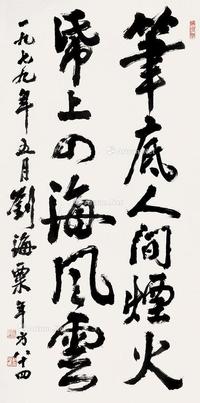 筆底人間煙火
帋上四海風雲
一九七九年五月劉海粟年方八十四